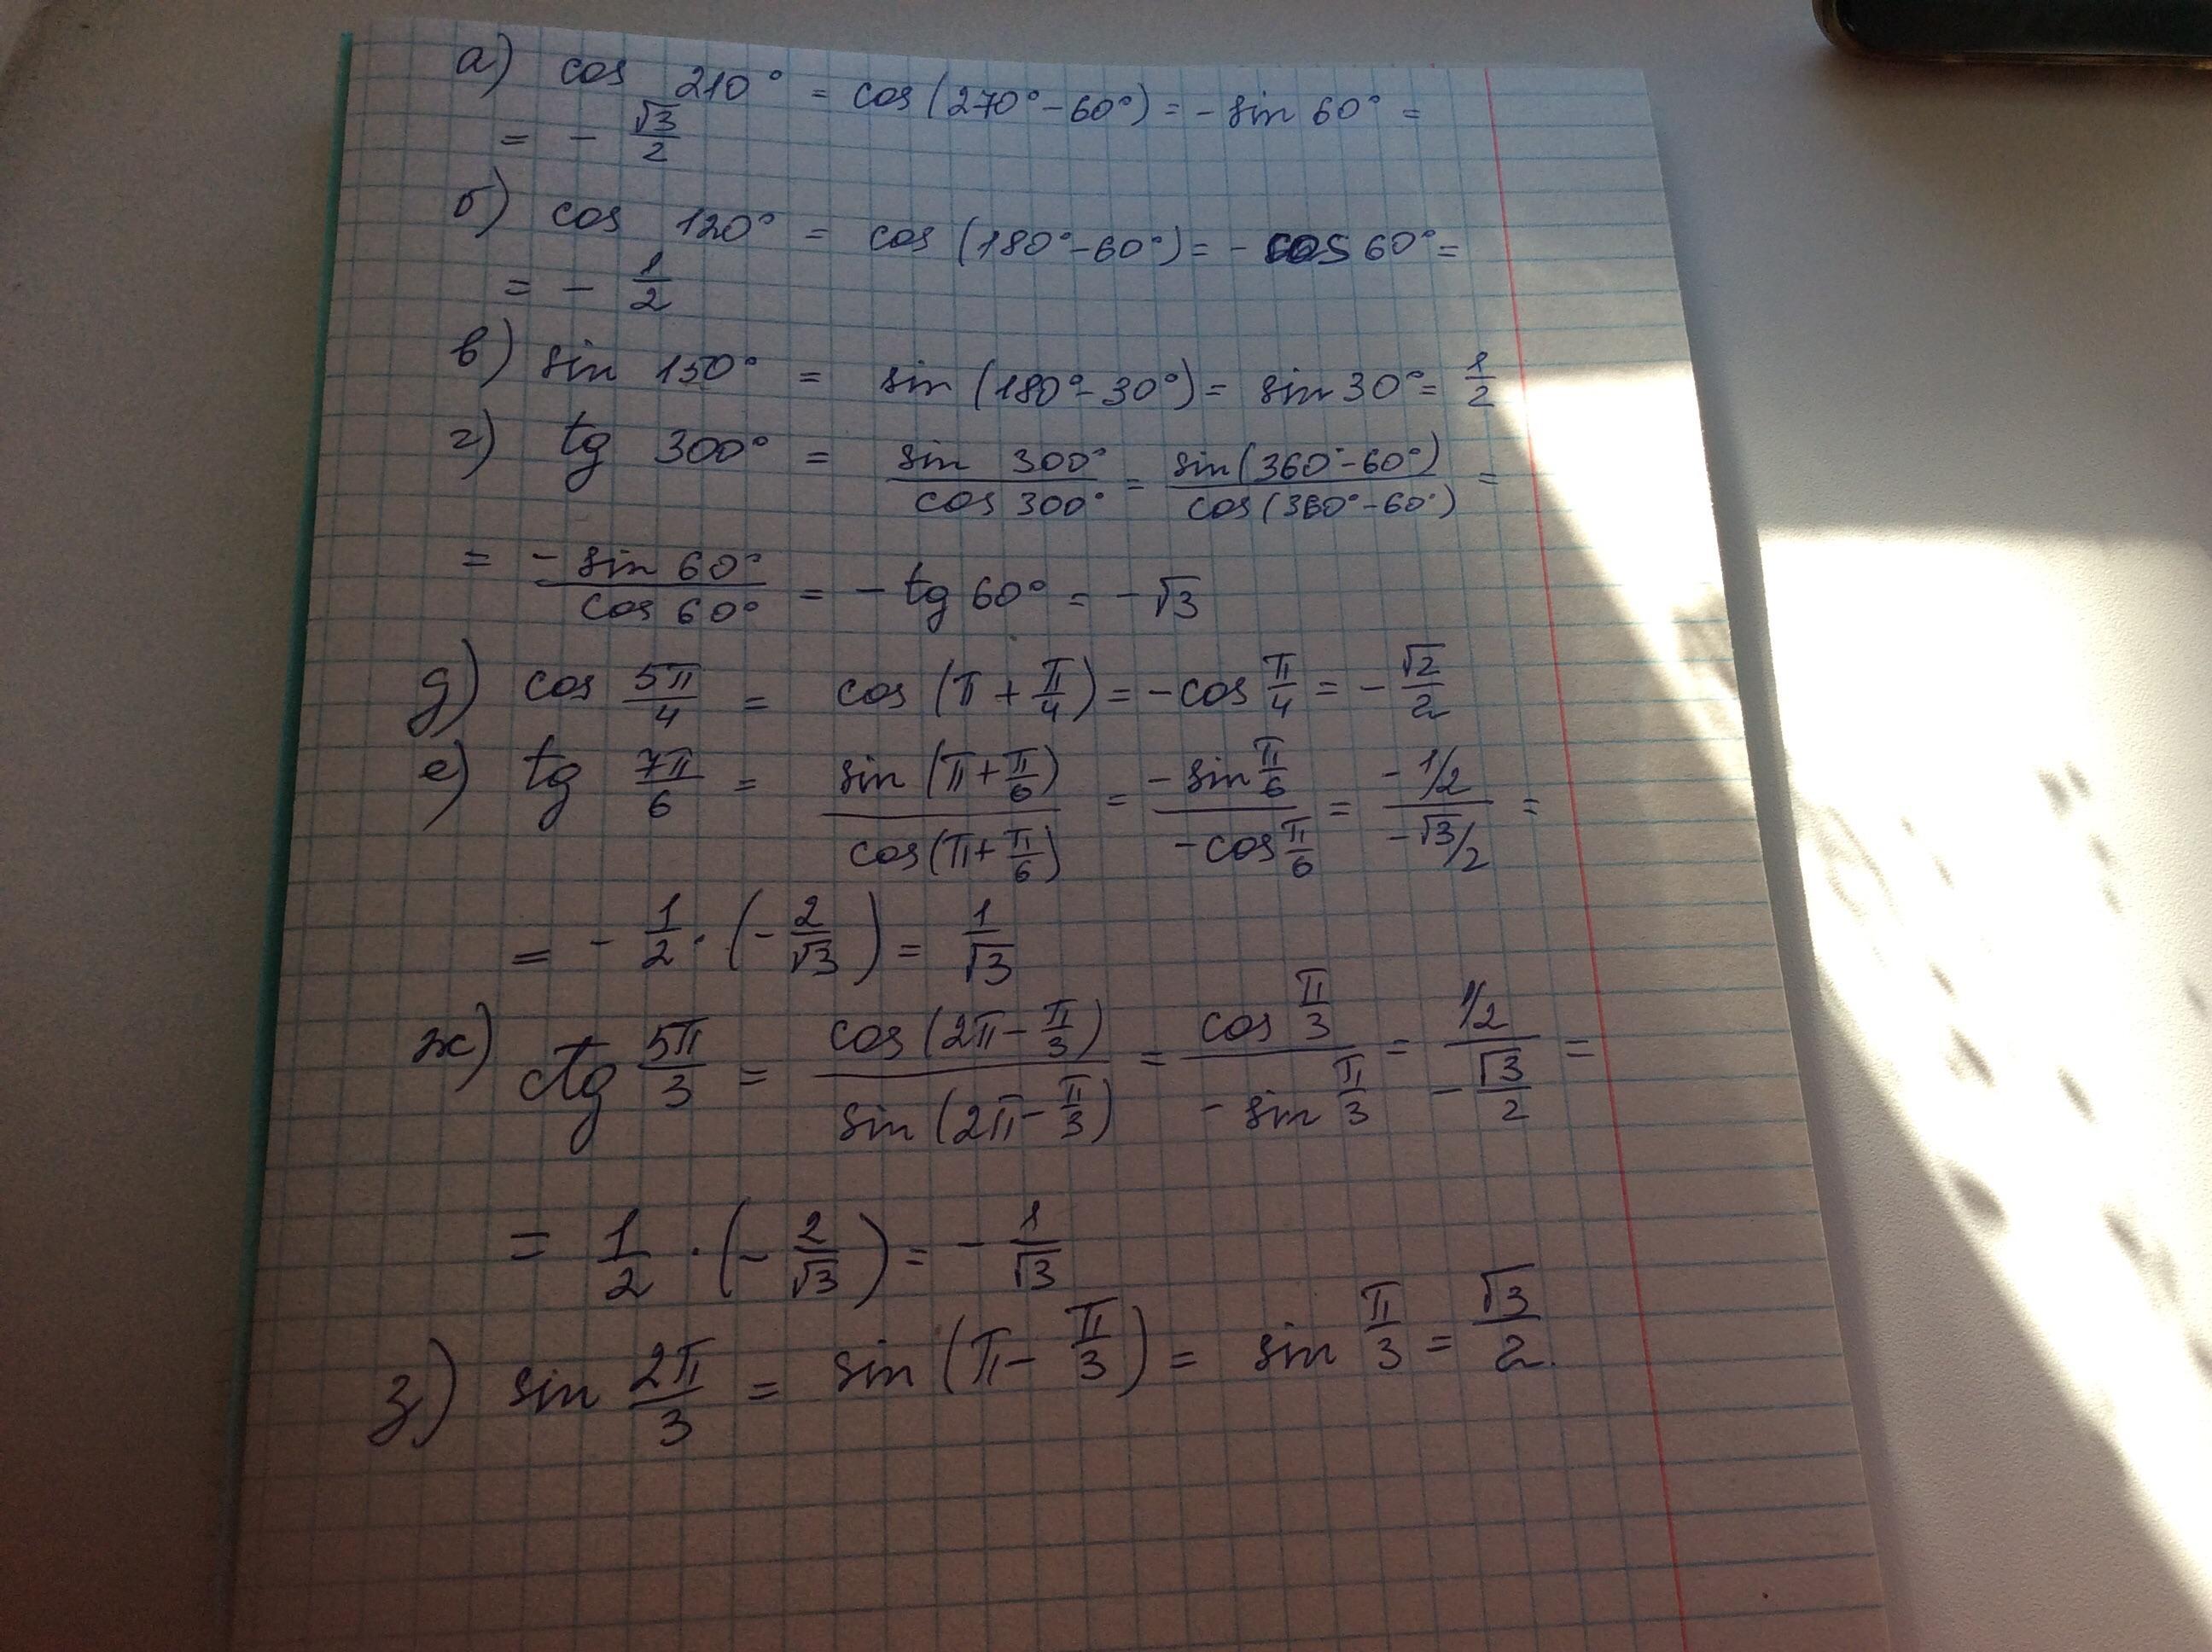 а) cos 210° = cos(270°-60°) = - sin 60° =
= - √3/2
б) cos 120° = cos(180°-60°) = - cos 60° =
= - 1/2
в) sin 150° = sin(180°-30°) = sin 30° = 1/2
г) tg 300° = sin 300°/cos 300° = sin(360°-60°)/cos(360°-60°) =
= - sin 60°/cos 60° = - tg 60° = - √3
д) cos 5π/4 = cos(π + π/4) = - cos π/4 = - √2/2
е) tg 7π/6 = sin(π + π/6)/cos(π + π/6) = - sin π/6 / - cos π/6 = - 1/2 / - √3/2 =
= - 1/2 · (- 2/√3) = 1/√3
ж) ctg 5π/3 = cos(2π - π/3)/sin(2π - π/3) = cos π/3 / - sin π/3 = 1/2 / - √3/2 =
= 1/2 · (- 2/√3) = - 1/√3
з) sin 2π/3 = sin(π - π/3) = sin π/3 = √3/2.